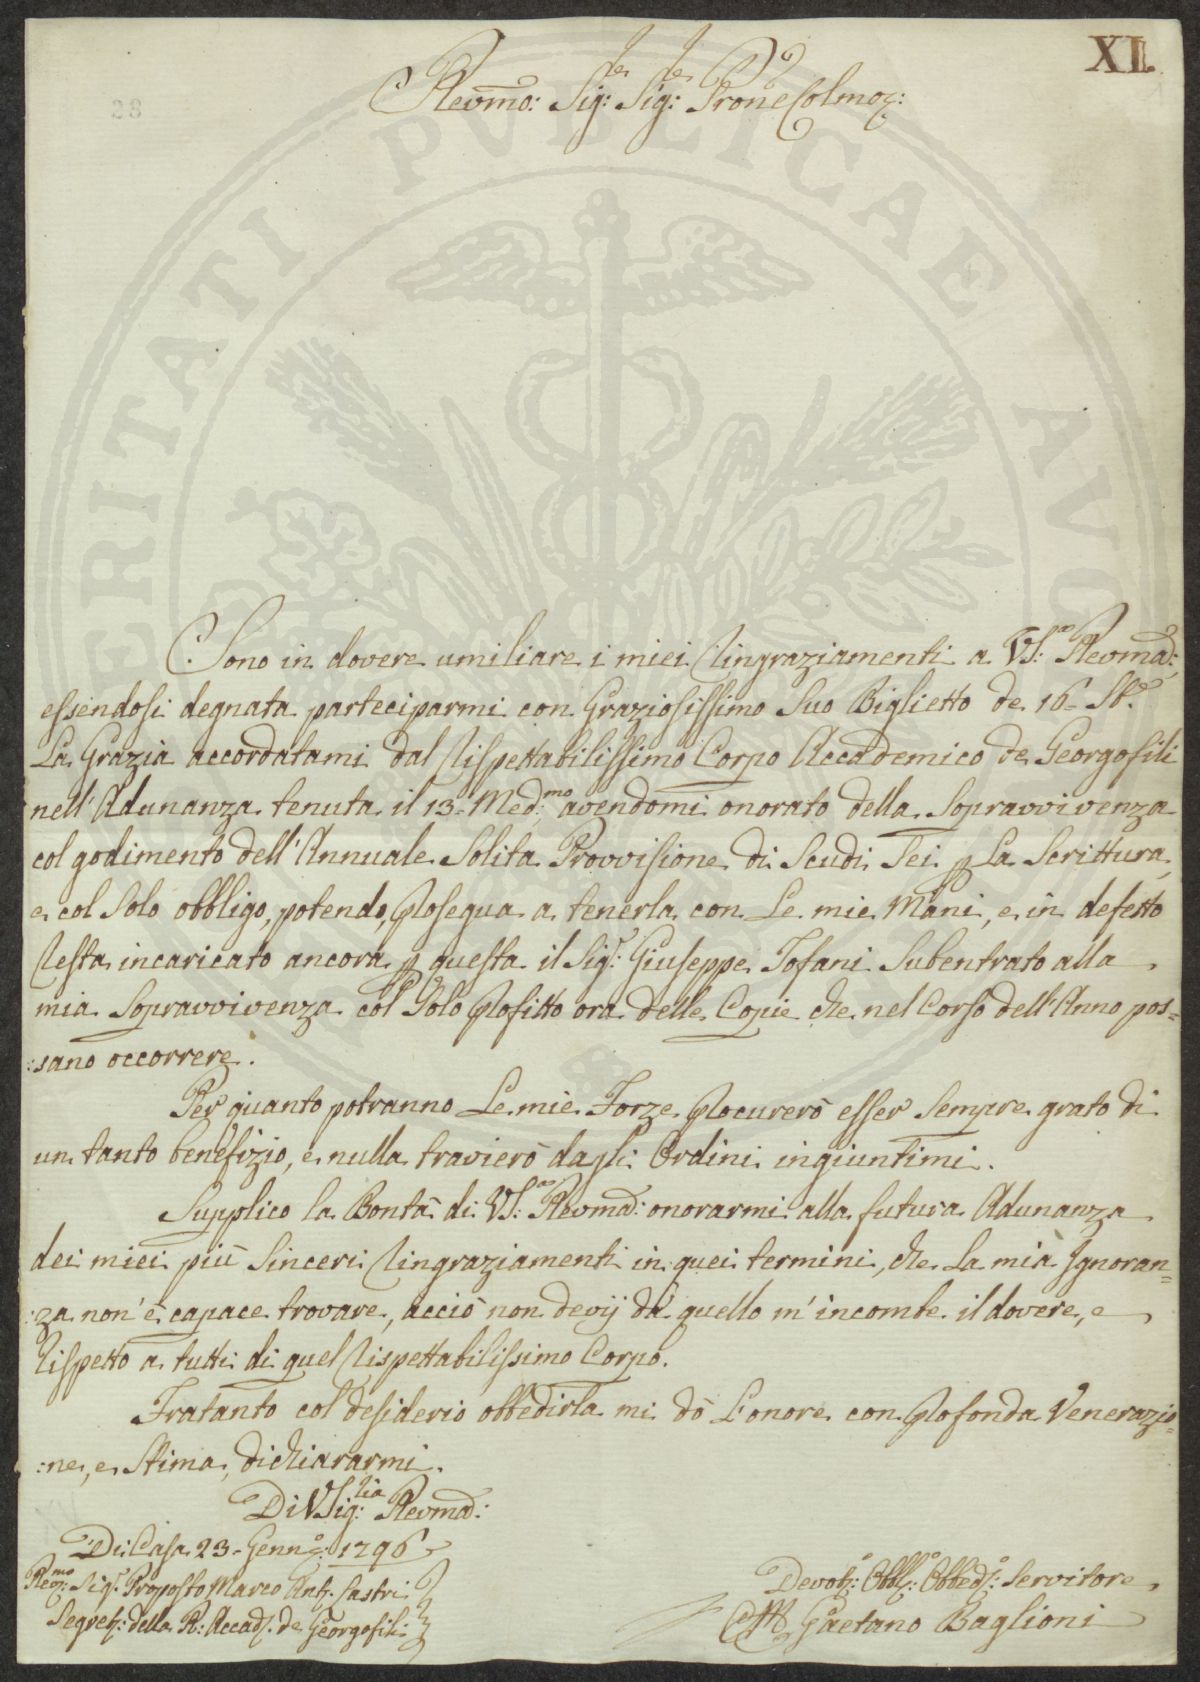 XI.
28
Revmo: Sig:re Sig:re Prone Colmoz:
Sono in dovere umiliare i miei ringraziamenti a VS:a Revma:
essendosi degnata parteciparmi con Graziosissimo Suo Biglietto de 16 St.e
La Grazia accordatami dal rispettabilissimo Corpo Accademico de Georgofili
nell' Adunanza tenuta il 13 Med:mo avendomi onorato della Sopravvivenza
col godimento dell' Annuale Solita Provvisione di Scudi Sei p La Scrittura,
e col Solo obbligo, potendo, prosegua a tenerla con Le mie Mani, e in defetto
resta incaricato ancora p questa il Sig:r Giuseppe Tofani Subentrato alla
mia Sopravvivenza col Solo profitto ora delle Copie che nel Corso dell' Anno pos=
:sano occorrere.
Per quanto potranno Le mie Forze procurerò esser Sempre grato di
un tanto benefizio, e nulla travierò dagli Ordini ingiuntimi.
Supplico la Bontà di VS:a Revma: onorarmi alla futura Adunanza
dei miei più Sinceri ringraziamenti in quei termini, che La mia Ignoran=
:za non è capace trovare, acciò non devij da quello m' incombe il dovere, e
rispetto a tutti di quel rispettabilissimo Corpo.
Fratanto col desiderio obbedirla mi dò L'onore con profonda Venerazio=
:ne, e Stima, dichiararmi.
Di VSig:ria Revma:
Di Casa 23 Genn:o 1796
Rev:mo Sig:r Proposto Marco Ant: Lastri
Segret: della R: Accad: de Georgofili
Devot:o Obbl:o Obbed:o Servitore
Gaetano Baglioni
PVBLICAE